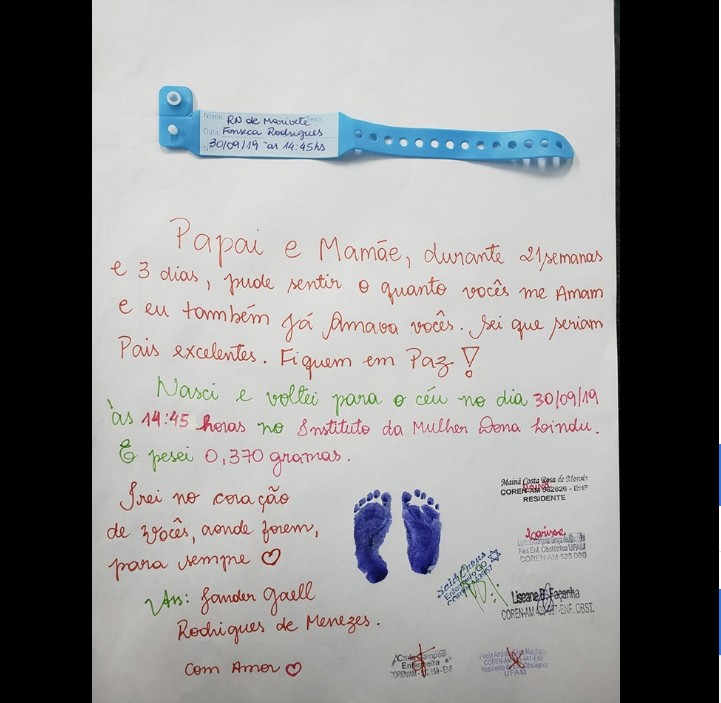 Nome: RN de Marivete Sexo:
Data: Fonseca Rodrigues
Nº 30/09/19 às 14:45hs
Papai e Mamãe, durante 21 semanas
e 3 dias, pude sentir o quanto vocês me Amam
e eu também já Amava vocês. Sei que seriam
Pais excelentes. Fiquem em Paz!
Nasci e voltei para o céu no dia 30/09/19
às 14:45 horas no Instituto da Mulher Dona Lindu.
E pesei 0,370 gramas.
Irei no coração
de vocês, aonde forem,
para sempre ♡
Ass: Jander Gaell
Rodrigues de Menezes.
Com Amor ♡
Mainã Costa Rosa de Moraes
COREN-AM
RESIDENTE
Larisse
Res Enf. Obstétrica UFAM
COREN-AM
Liseane B. Façanha
COREN-AM ENF. OBST.
Campo
Enfermeira
COREN/AM ENF
Paula
COREN-AM 441-Enf
UFAM